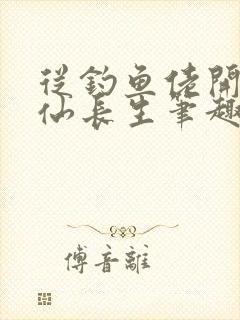 從釣魚佬開
仙長生筆趣
傅音離